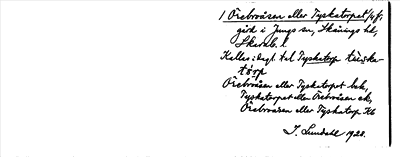 1 Örebroåsen eller Tyskatorpet 1/4 fr,
gård i Jungs sn, Skånings hd,
Skarab. l
Kallas i dagl. tal Tyskatorp
torp
Örebroåsen eller Tyskatorpet
Tyskatorpet eller Örebroåsen
Örebroåsen eller Tyskatorp
I. Lundahl 1920.